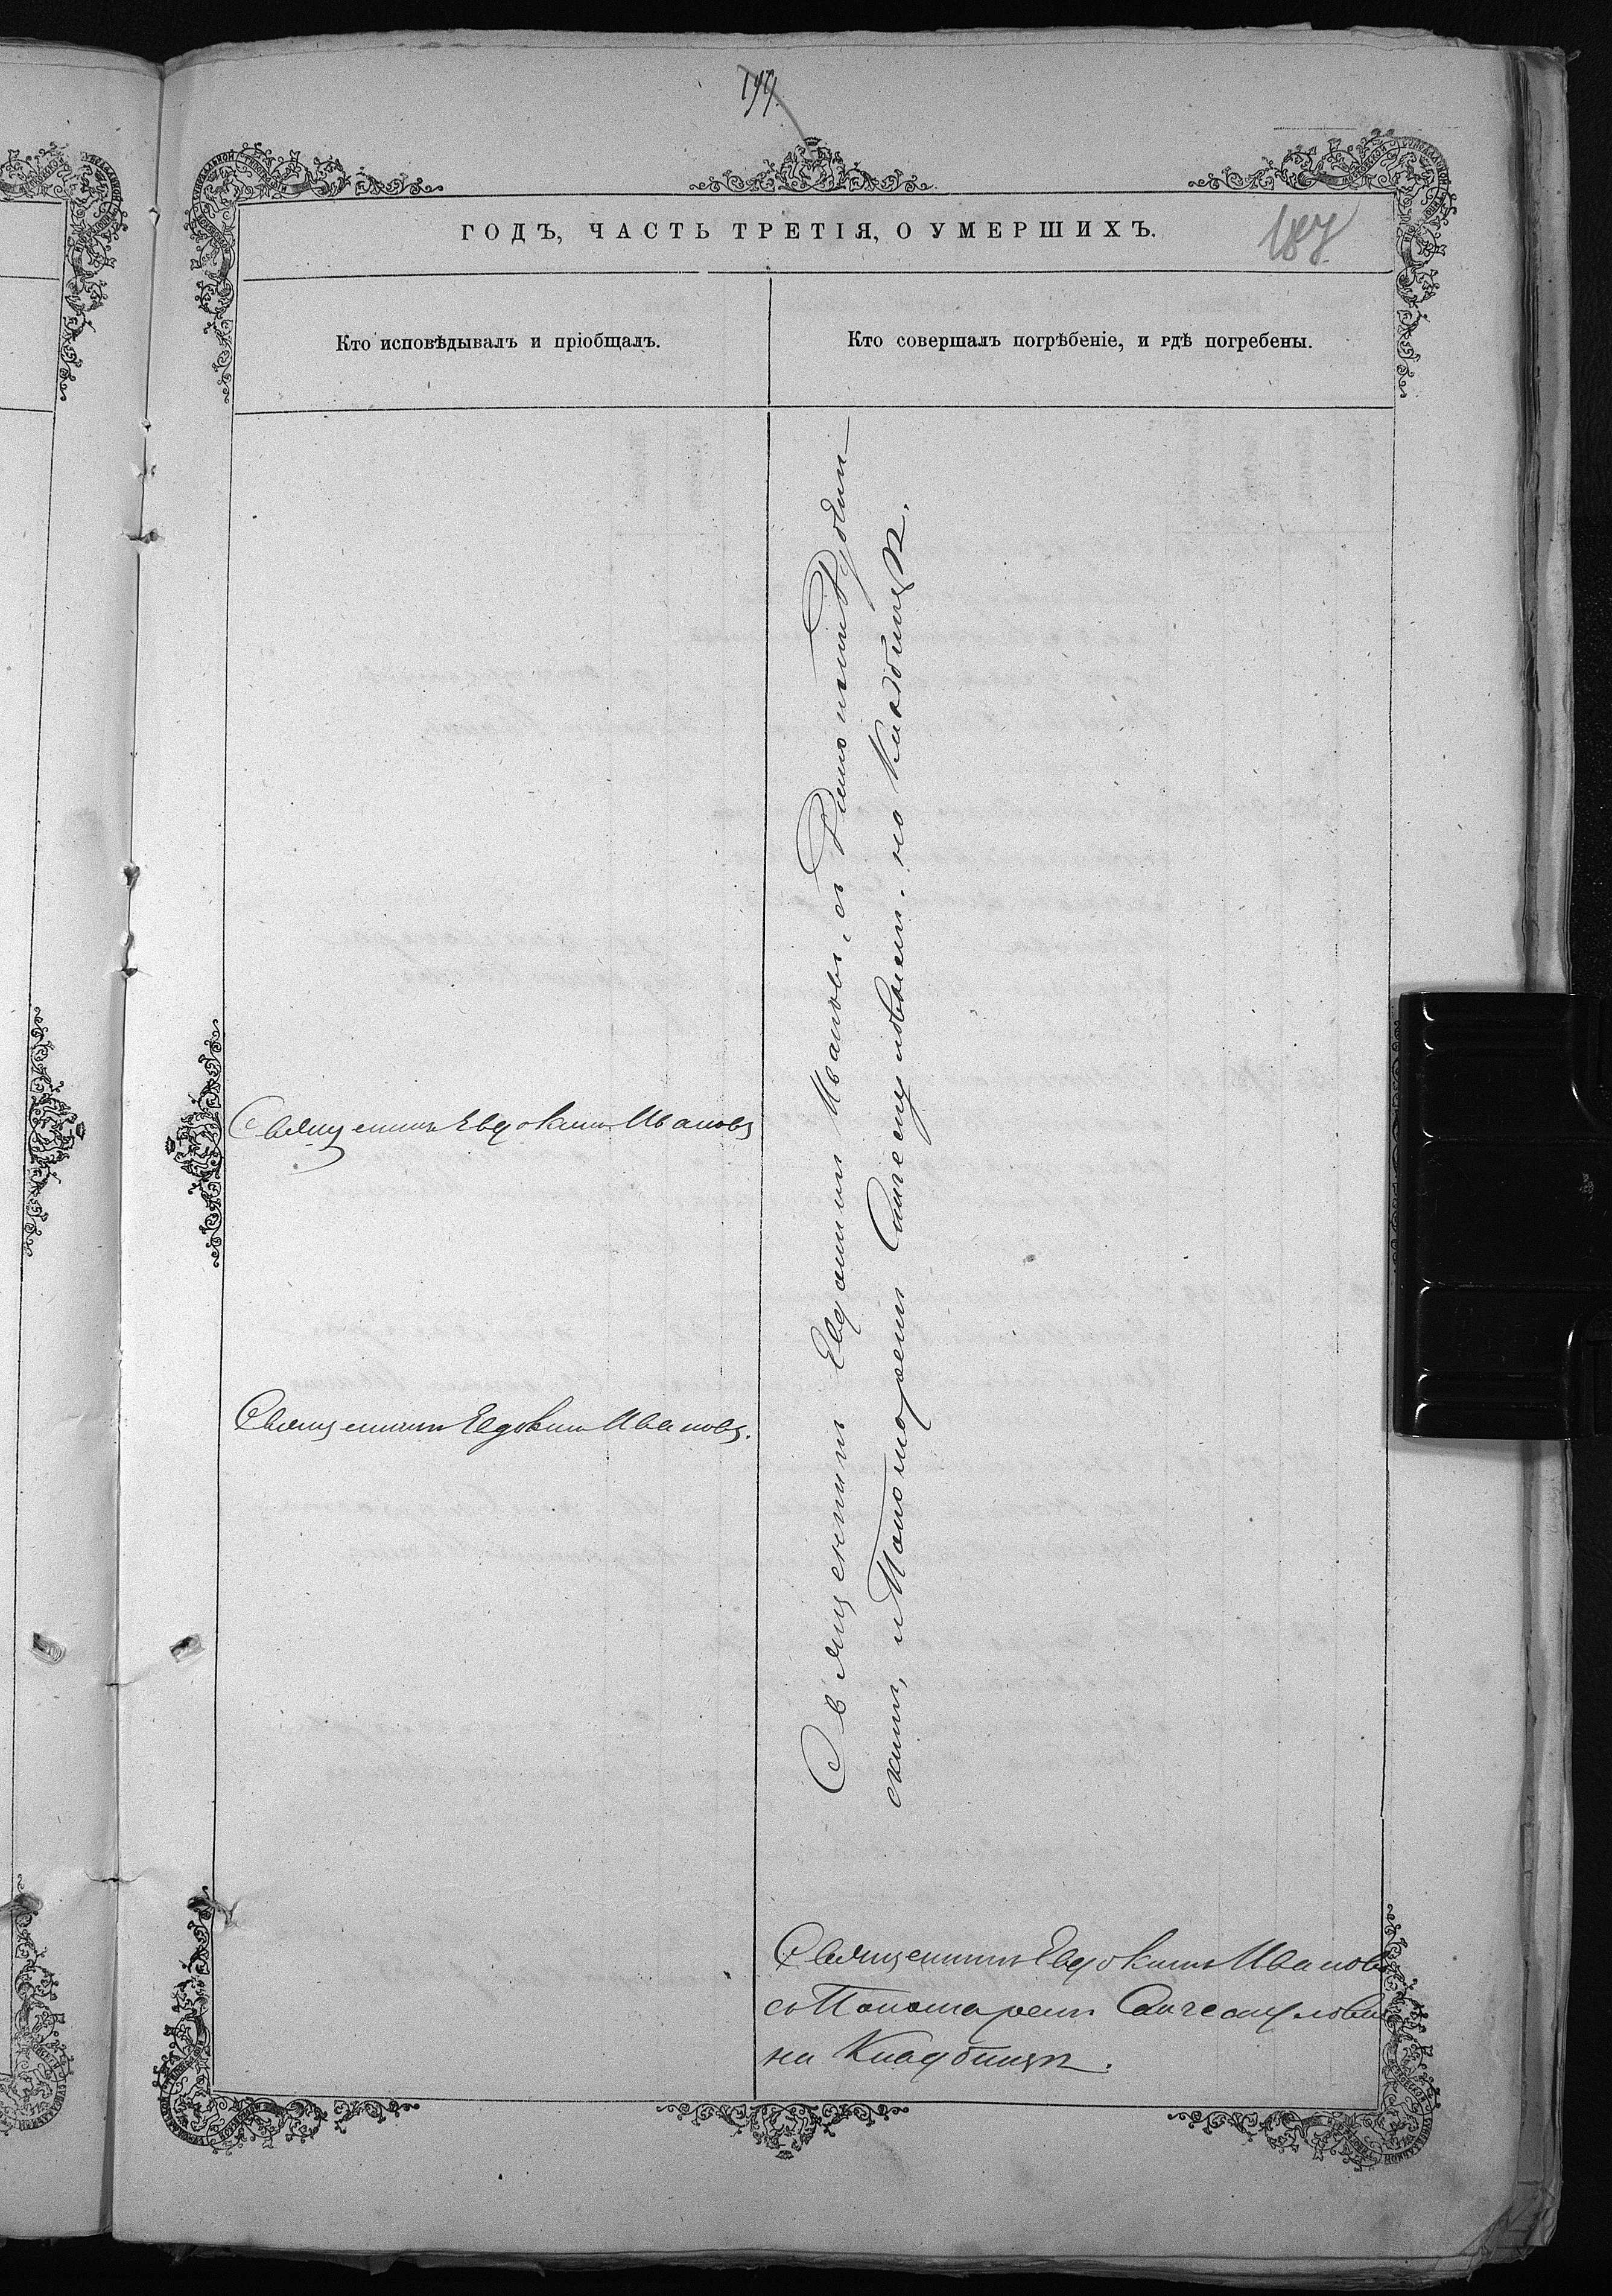 199.
187
ГОДЪ, ЧАСТЬ ТРЕТІЯ, О УМЕРШИХЪ.
Кто исповѣдывалъ и пріобщалъ.
Кто совершалъ погрѣбеніе, и гдѣ погребены.
Священникъ Евдокимъ Ивановъ
Священникъ Евдокимъ Ивановъ.
Священникъ Евдокимъ Ивановъ, съ
скимъ, и Пономаремъ на Кладбищѣ.
Священникъ Евдокимъ Ивановъ
съ Пономаремъ
на Кладбищѣ.